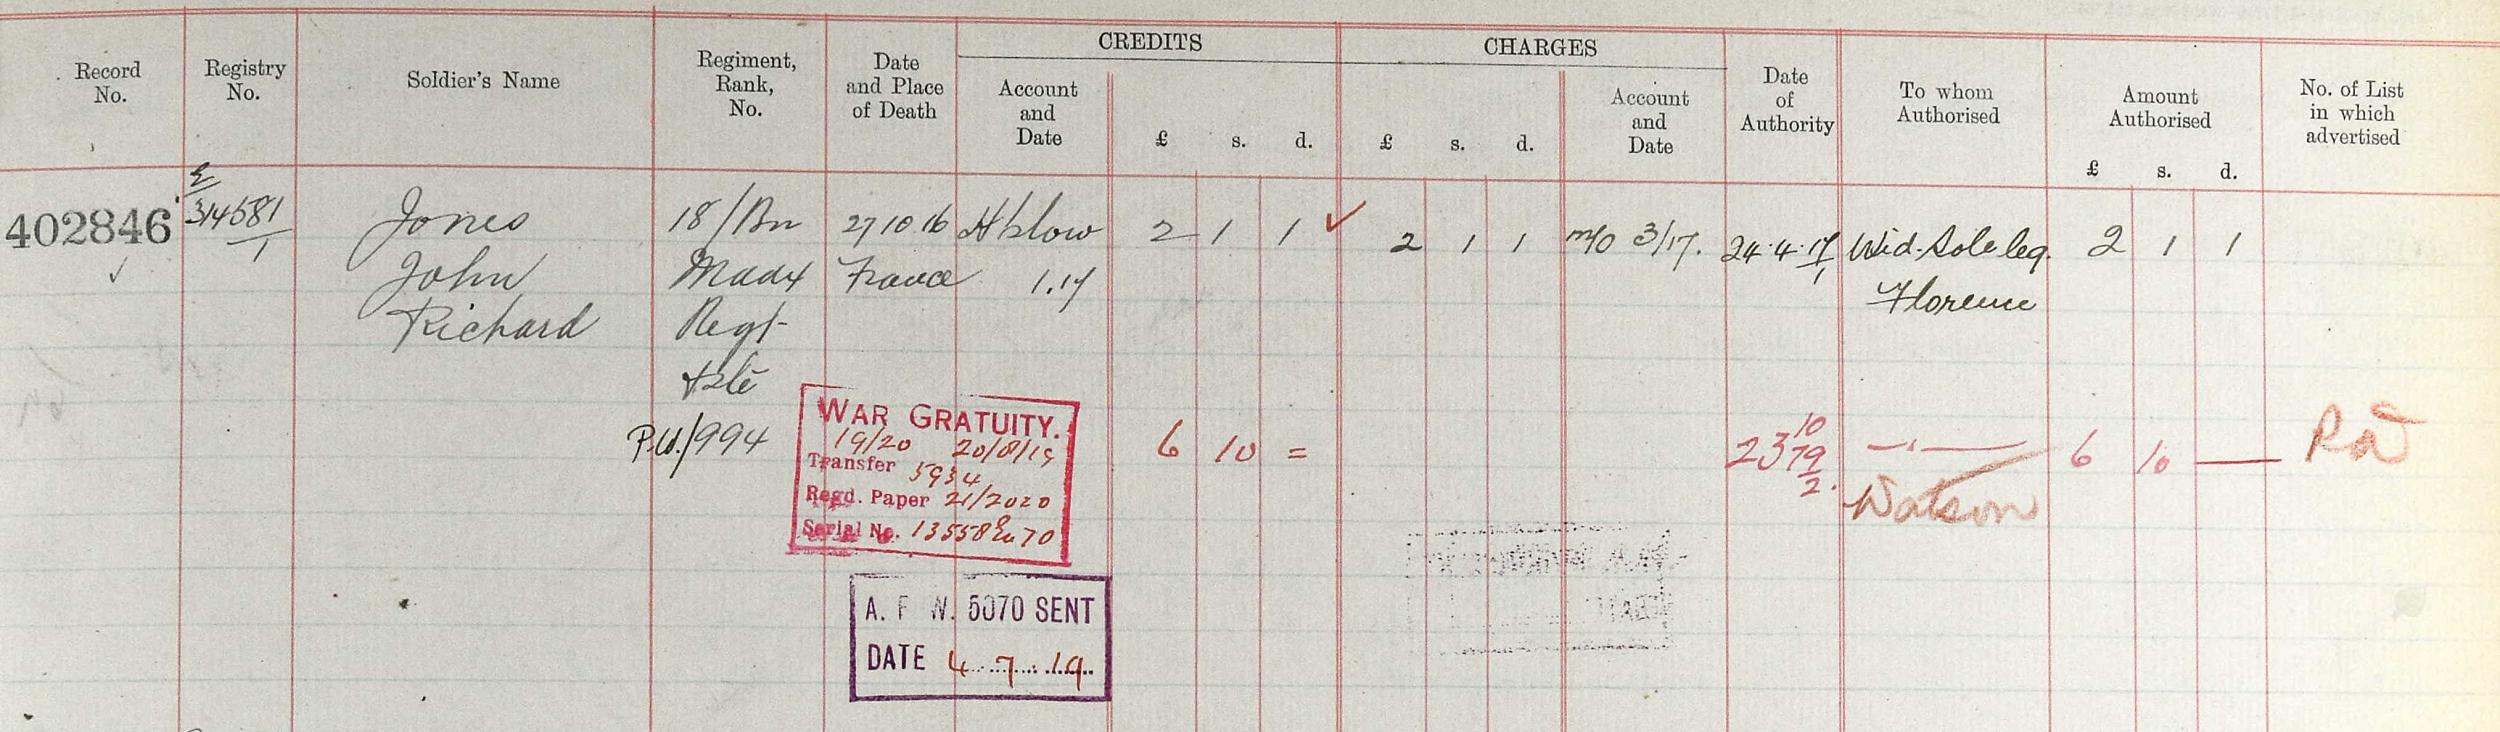 CREDITS
CHARGES
Record No.
Registry No.
Soldier's Name
Regiment, Rank, No.
Date and Place of Death
Account and Date
£ s. d.
£ s. d.
Account and Date
Date of Authority
To whom Authorised
Amount Authorised
£ s. d.
No. of List in which advertised
E
402846 314581/1 Jones 18/Bn 27 10 16 2 1 1 ✓ 2 1 1 m/o 3/17. 24.4.17/1 Wid. Sole leg. 2 1 1
✓ John Maddx France 1.17 Florence
Richard Regt
Pte
P.W./994
WAR GRATUITY.
19/20 20/8/19
Transfer 5934
Regd. Paper 21/2020
Serial No. 13558 70
6 10 =
23 10 19/2. — " — 6 10 —
Watson
A. F W. 5070 SENT
DATE 4 7 19